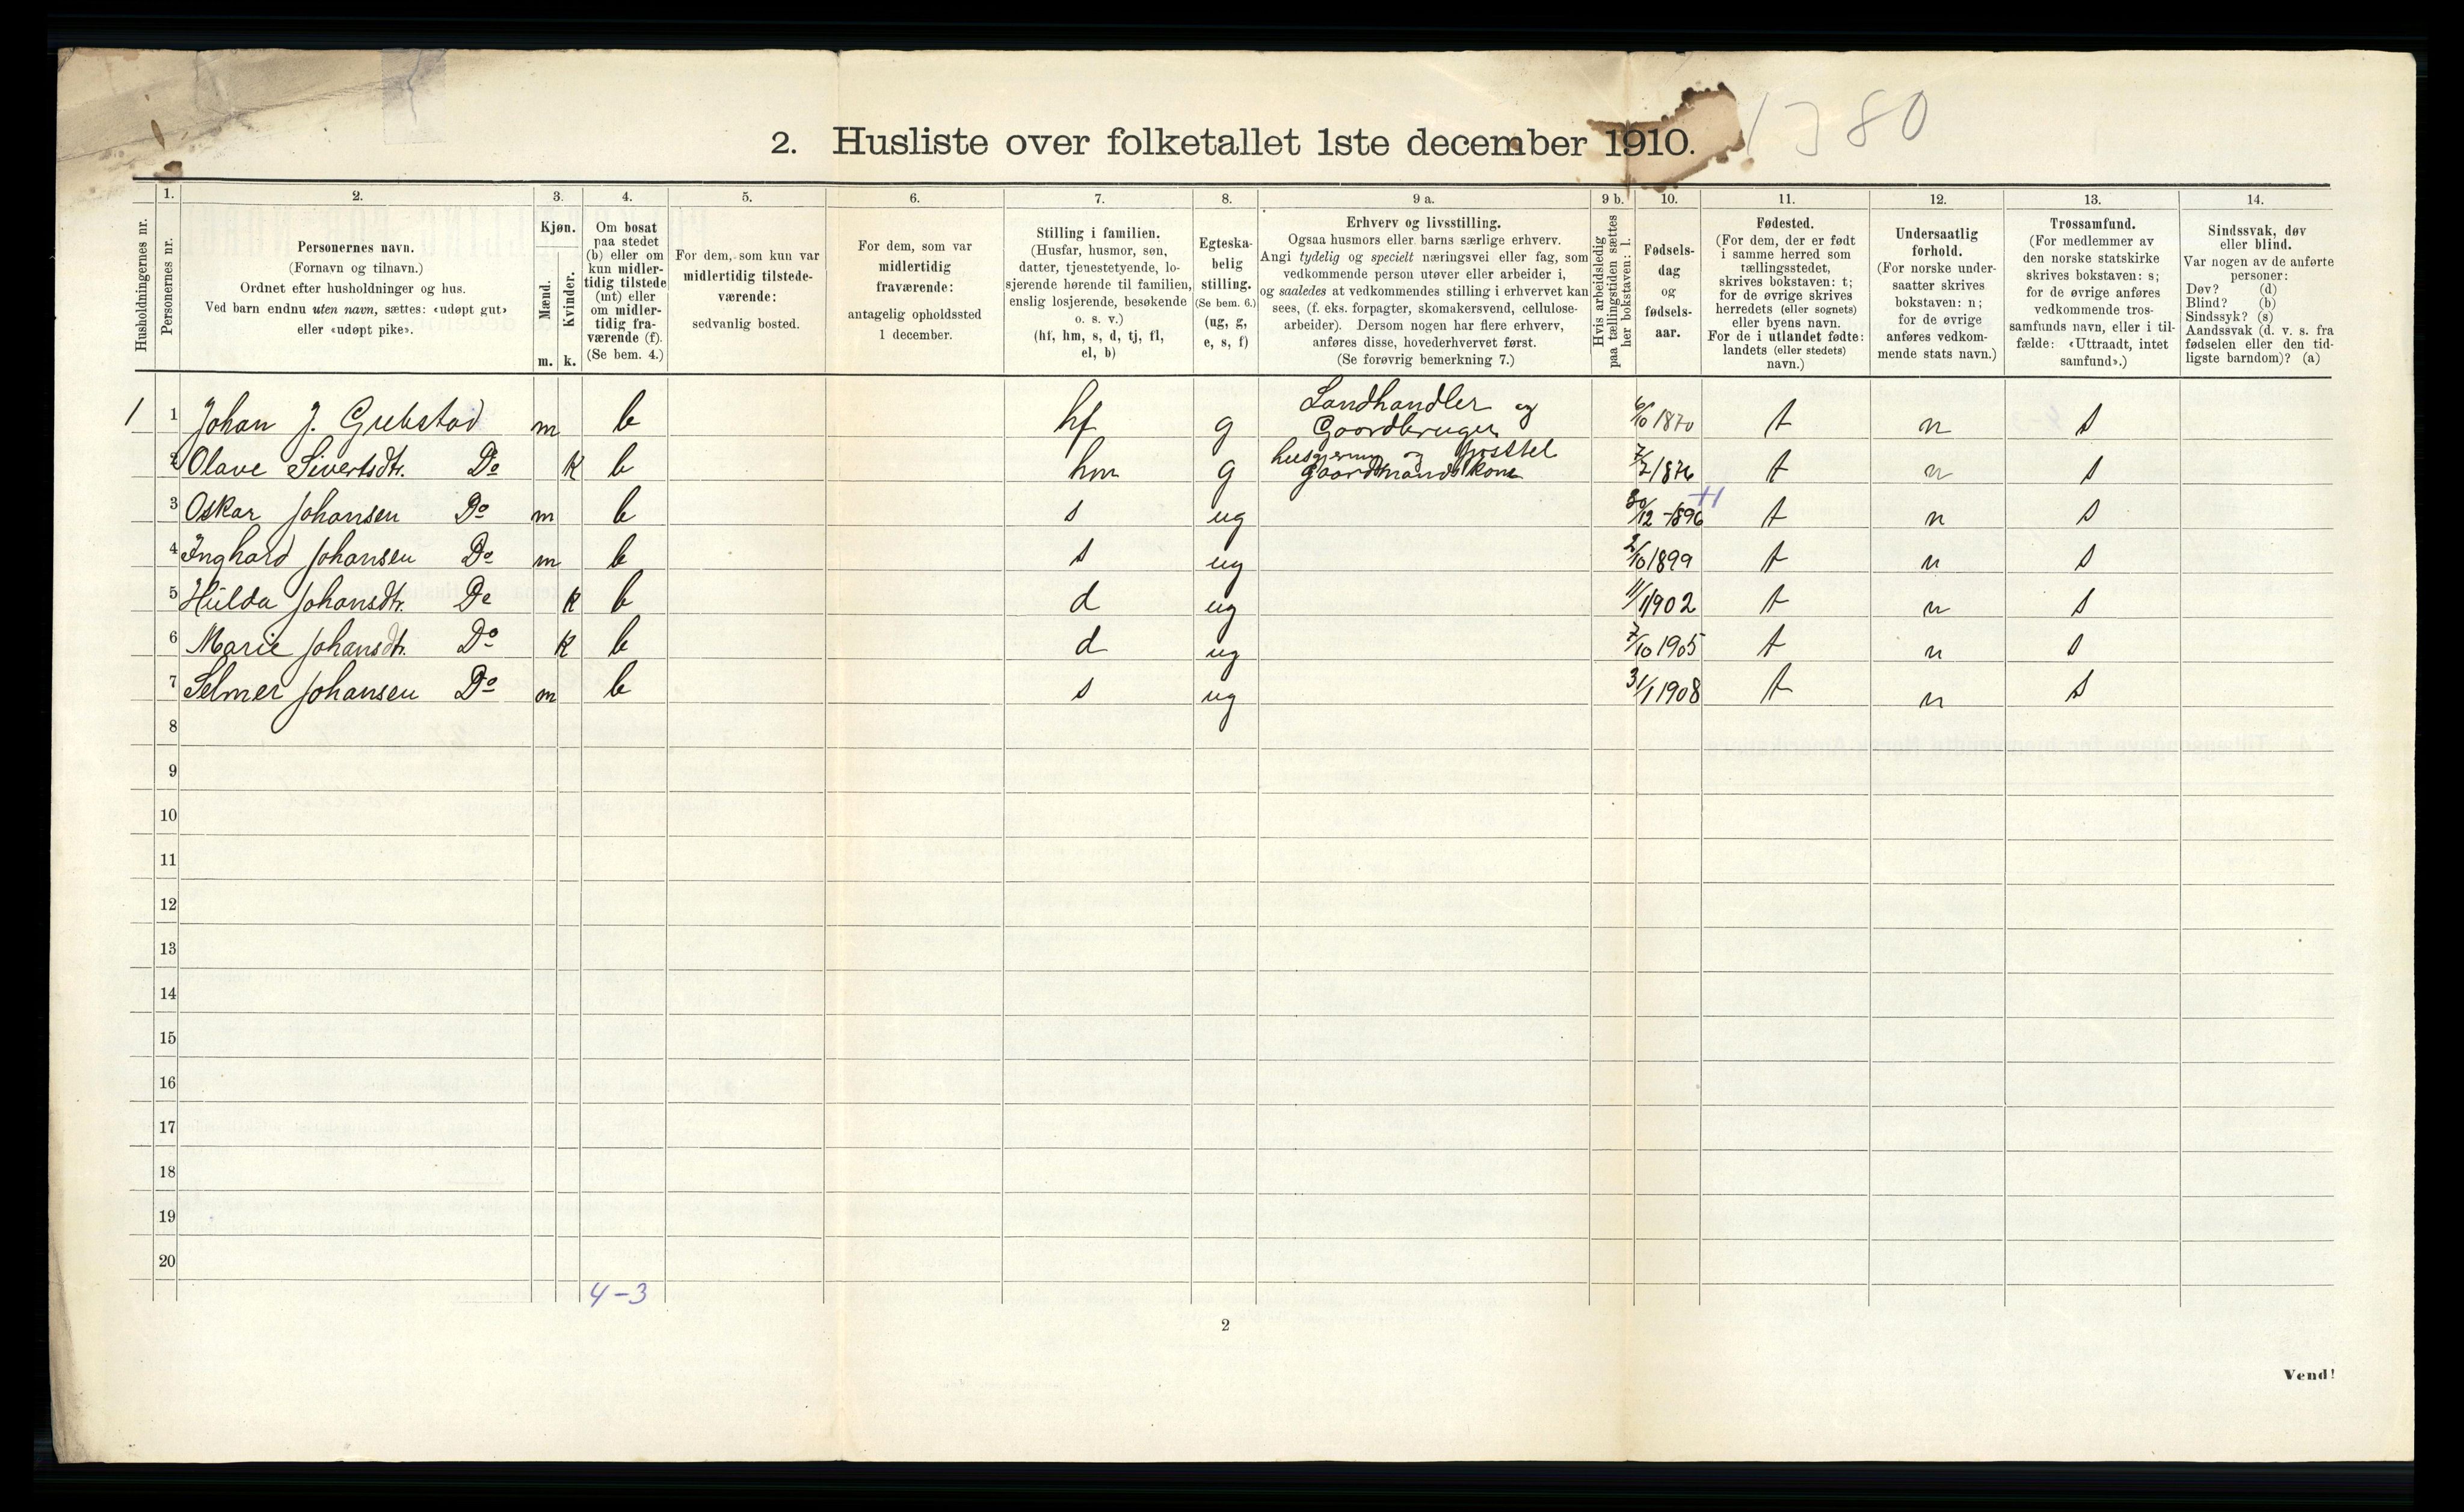 1380
2. Husliste over folketallet 1ste december 1910.
Husholdningernes nr.
1.
Personernes nr.
2.
Personernes navn.
(Fornavn og tilnavn.)
Ordnet efter husholdninger og hus.
Ved barn endnu uten navn, sættes: «udøpt gut»
eller «udøpt pike».
3.
Kjøn.
Mænd.
Kvinder.
m. k.
4.
Om bosat
paa stedet
(b) eller om
kun midler-
tidig tilstede
(mt) eller
om midler-
tidig fra-
værende (f).
(Se bem. 4.)
5.
For dem, som kun var
midlertidig tilstede-
værende:
sedvanlig bosted.
6.
For dem, som var
midlertidig
fraværende:
antagelig opholdssted
1 december.
7.
Stilling i familien.
(Husfar, husmor, søn,
datter, tjenestetyende, lo-
sjerende hørende til familien,
enslig losjerende, besøkende
o. s. v.)
(hf, hm, s, d, tj, fl,
el, b)
8.
Egteska-
belig
stilling.
(Se bem. 6.)
(ug, g,
e, s, f)
9 a.
Erhverv og livsstilling.
Ogsaa husmors eller barns særlige erhverv.
Angi tydelig og specielt næringsvei eller fag, som
vedkommende person utøver eller arbeider i,
og saaledes at vedkommendes stilling i erhvervet kan
sees, (f. eks. forpagter, skomakersvend, cellulose-
arbeider). Dersom nogen har flere erhverv,
anføres disse, hovederhvervet først.
(Se forøvrig bemerkning 7.)
9 b.
Hvis arbeidsledig
paa tællingstiden sættes
her bokstaven: l.
10.
Fødsels-
dag
og
fødsels-
aar.
11.
Fødested.
(For dem, der er født
i samme herred som
tællingsstedet,
skrives bokstaven: t;
for de øvrige skrives
herredets (eller sognets)
eller byens navn.
For de i utlandet fødte:
landets (eller stedets)
navn.)
12.
Undersaatlig
forhold.
(For norske under-
saatter skrives
bokstaven: n;
for de øvrige
anføres vedkom-
mende stats navn.)
13.
Trossamfund.
(For medlemmer av
den norske statskirke
skrives bokstaven: s;
for de øvrige anføres
vedkommende tros-
samfunds navn, eller i til-
fælde: «Uttraadt, intet
samfund».)
14.
Sindssvak, døv
eller blind.
Var nogen av de anførte
personer:
Døv? (d)
Blind? (b)
Sindssyk? (s)
Aandssvak (d. v. s. fra
fødselen eller den tid-
ligste barndom)? (a)
1 1 Johan J. Grebstad m b hf g Landhandler og Gaardbruger 6/10 1870 t n s
2 Olave Sivertsdtr. Do k b hm g husgjerning og posttel gaardmandskone 7/7 1876 t n s
3 Oskar Johansen Do m b s ug 30/12 -1896 t n s
4 Inghard Johansen Do m b s ug 2/10 1899 t n s
5 Hilda Johansdtr. Do k b d ug 11/1 1902 t n s
6 Marie Johansdtr. Do k b d ug 7/10 1905 t n s
7 Selmer Johansen Do m b s ug 31/1 1908 t n s
8
9
10
11
12
13
14
15
16
17
18
19
20
4-3
2
Vend!